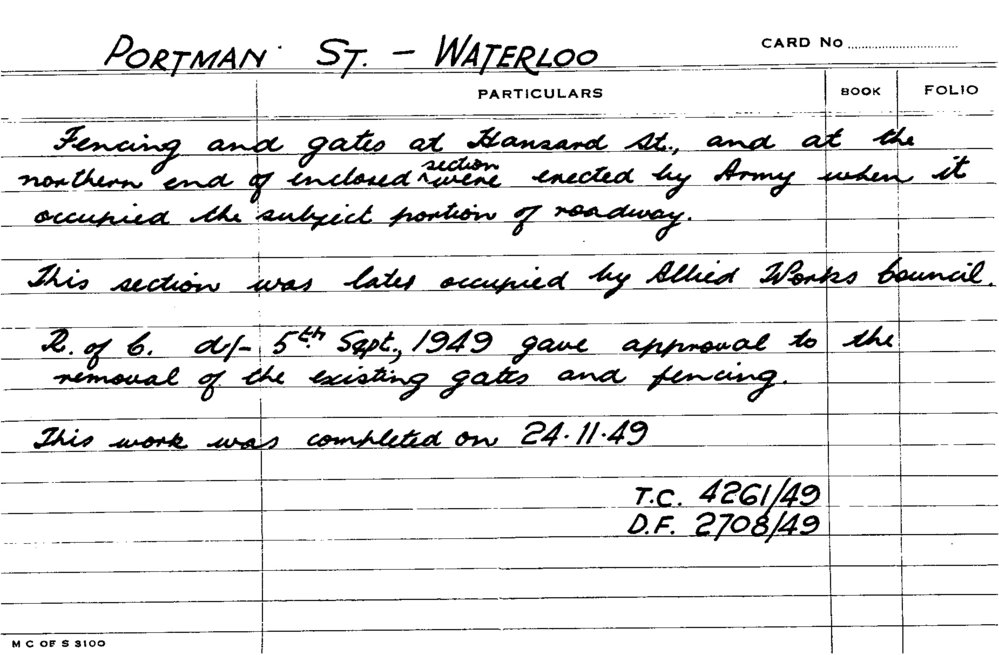 PORTMAN ST. – WATERLOO
CARD No
PARTICULARS BOOK FOLIO
Fencing and gates at Hansard St., and at the
northern end of enclosed section were erected by Army when it
occupied the subject portion of roadway.
This section was later occupied by Allied Works Council.
R. of C. d/- 5th Sept., 1949 gave approval to the
removal of the existing gates and fencing.
This work was completed on 24.11.49
T.C. 4261/49
D.F. 2708/49
M C OF S 3100